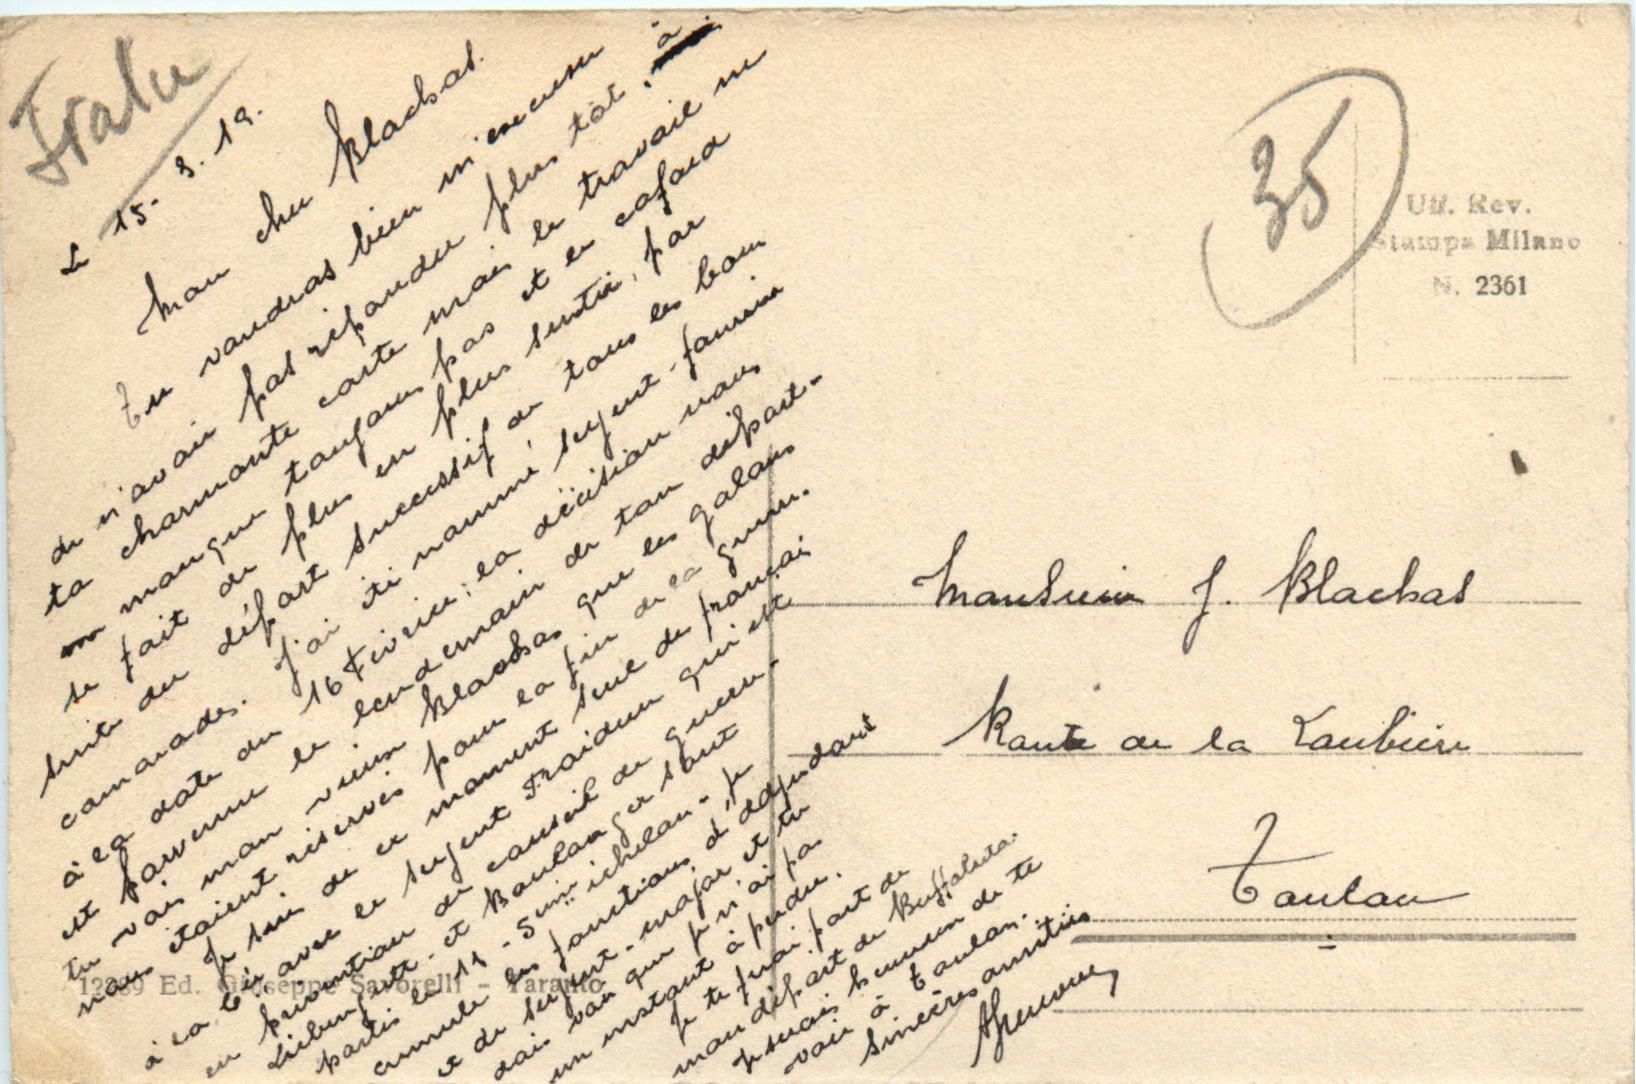 Italie
Le 15.3.19.
Mon cher Blachas.
Tu voudras bien m'excuser
de n'avoir pas répondu plus tôt, à
ta charmante carte mais le travail ne
manque toujours pas et le cafard
se fait de plus en plus sentir, par
suite du départ successif de tous les bons
camarades. J'ai été nommé sergent-fourrier
à la date du 16 Février; la décision nous
est parvenue le lendemain de ton départ.
Tu vois mon vieux Blachas que les galons
nous étaient réservés pour la fin de la guerre.
Je suis de ce moment seul de français
à la avec le sergent qui est
en prévention de conseil de guerre.
et Boulanger sont
partis le 11 - échelon. Je
cumule les fonctions d'adjudant
et de sergent-major et tu
dois voir que je n'ai pas
un instant à perdre.
Je te ferai part de
mon départ de Buffoluto.
Je serais heureux de te
voir à Toulon.
Sincères amitiés
Uff. Rev.
Stampa Milano
N. 2361
35
Monsieur J. Blachas
Route de la Loubière
Toulon
12289 Ed. Giuseppe Savorelli - Taranto